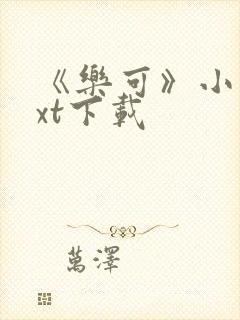 《樂可》小
xt下載
萬澤